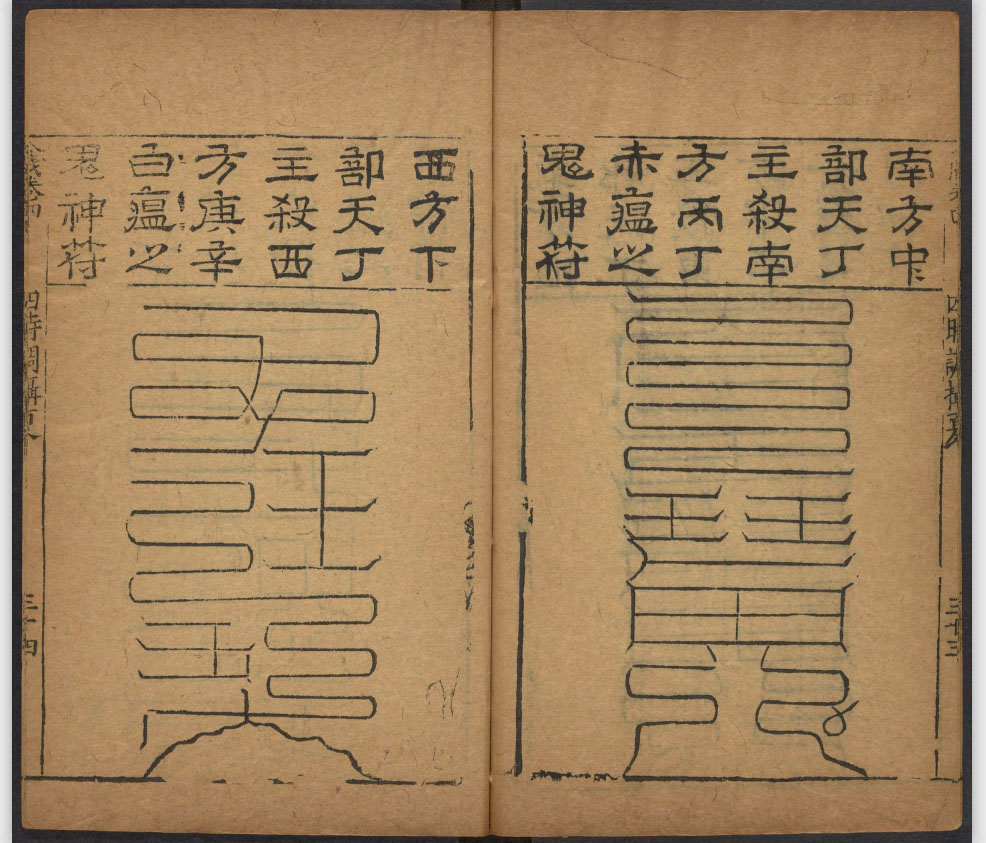 南方中
部天丁
主殺南
方丙丁
赤瘟之
鬼神符
西方下
部天丁
主殺西
方庚辛
白瘟之
鬼神符
四時調攝
三十三
四時調攝
三十四